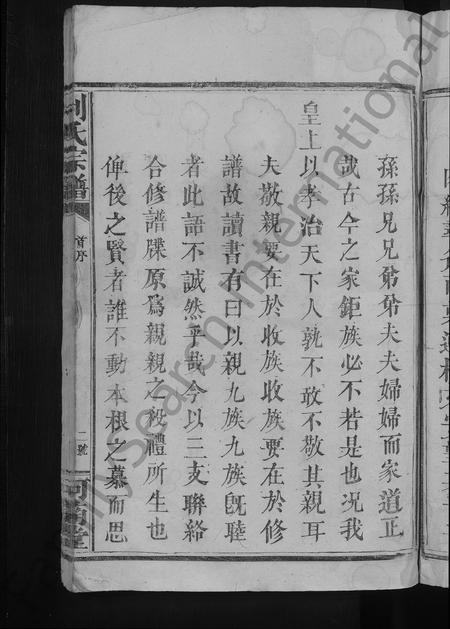 孫孫兄兄弟弟夫夫婦婦而家道正
哉古今之家鉅族必不若是也况我
皇上以孝治天下人孰不敢不敬其親耳
夫敬親要在於收族收族要在於修
譜故讀書有曰以親九族九族旣睦
者此語不誠然乎哉今以三支聯絡
合修譜牒原爲親親之殺禮所生也
俾後之賢者誰不動本根之慕而思
劉氏宗譜
首序
二號
堂
FamilySearch International